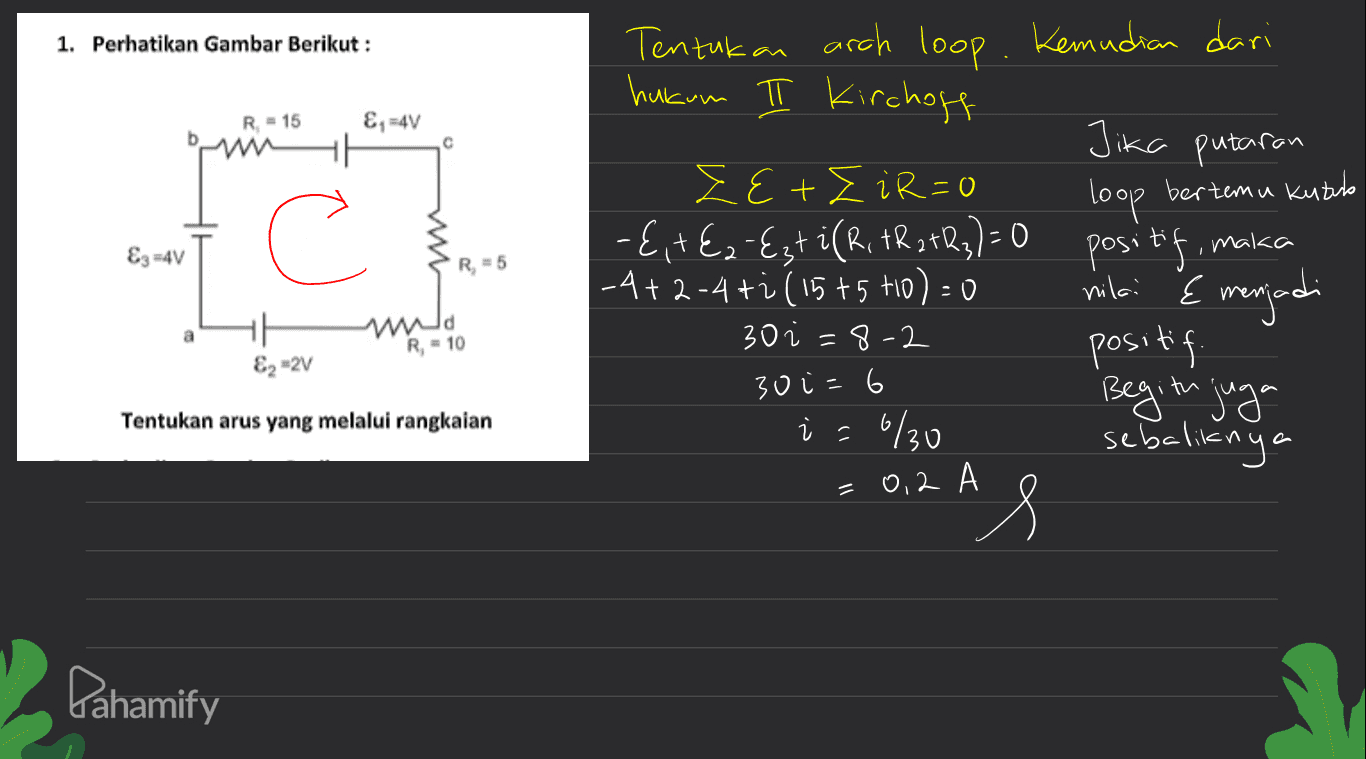 1. Perhatikan Gambar Berikut :
R₁ = 15
ε₁ =4V
b
c
ε₃ =4V
R₁ = 5
a
d
R₁ = 10
ε₂ =2V
Tentukan arus yang melalui rangkaian
Tentukan arah loop. Kemudian dari
hukum II Kirchoff
Σ ε + Σ iR = 0
-ε₁ + ε₂ - ε₃ + i(R₁ + R₂ + R₃) = 0
-4 + 2 - 4 + i (15 + 5 + 10) = 0
30 i = 8 - 2
30 i = 6
i = 6/30
= 0,2 A
Jika putaran
loop bertemu kutub
positif, maka
nilai ε menjadi
positif.
Begitu juga
sebaliknya
Pahamify